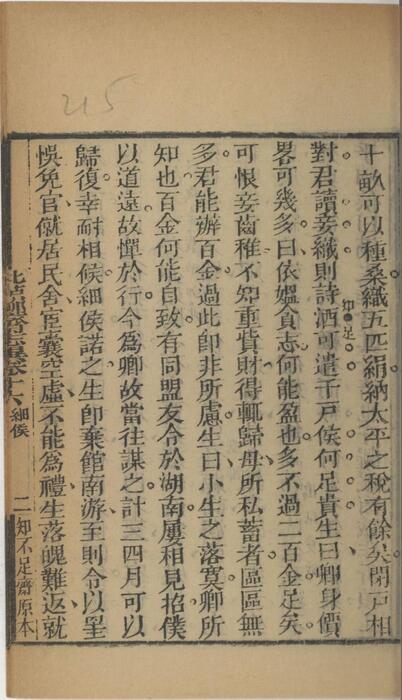 215
十畝可以種桑織五匹絹納太平之稅有餘矣閉戶相
對君讀妾織則詩酒可遣千戶侯何足貴生曰卿身價
知足
畧可幾多曰依媼貪志何能盈也多不過二百金足矣
可恨妾齒稚不知重貲財得輒歸母所私蓄者區區無
多君能辦百金過此卽非所慮生曰小生之落寞卿所
知也百金何能自致有同盟友令於湖南屢相見招僕
以道遠故憚於行今爲卿故當往謀之計三四月可以
歸復幸耐相候細侯諾之生卽棄館南游至則令以罣
悞免官僦居民舍宦囊空虛不能爲禮生落魄難返就
十六
細侯
二
知不足齋原本